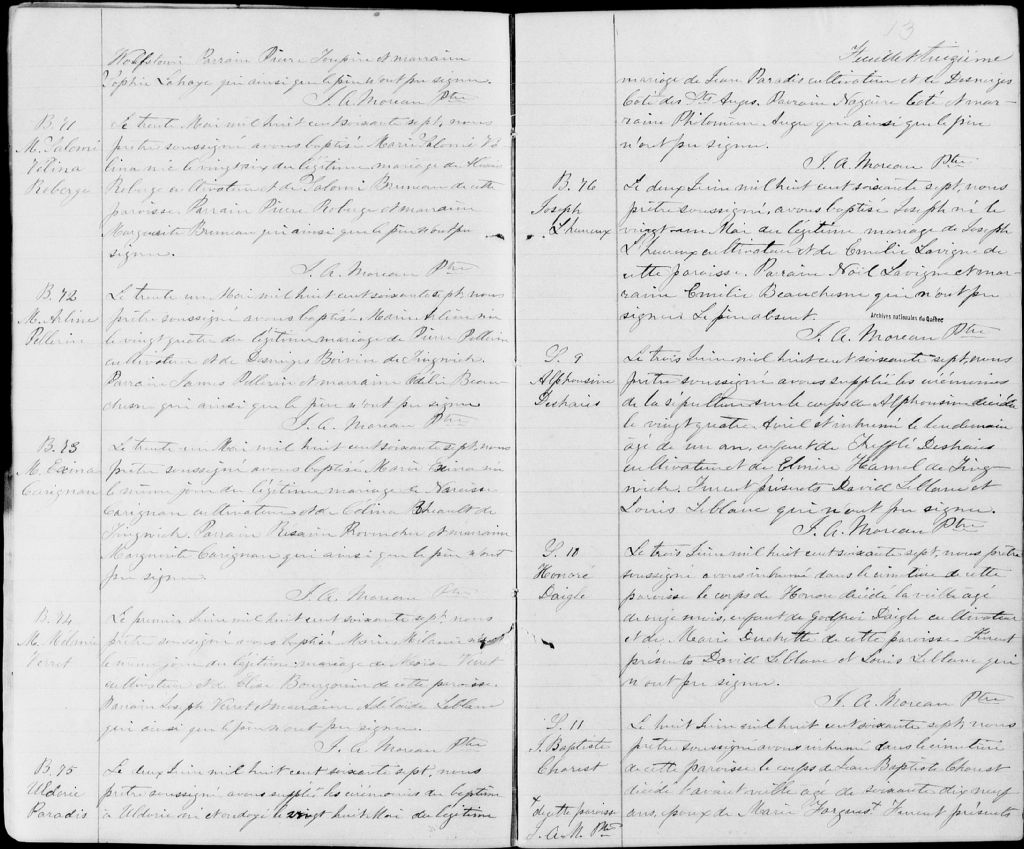 Wolfstown Parrain Pierre Toupin et marraine
Sophie Lahaye qui ainsi que le père n'ont pu signer.
J. A. Moreau Ptre
B. 71
M. Salomé
Vélina
Roberge
Le trente Mai mil huit cent soixante sept, nous
prêtre soussigné avons baptisé Marie Salomé Vé
lina née le vingt six du légitime mariage de
Roberge cultivateur et de Salomé Bruneau de cette
paroisse. Parrain Pierre Roberge et marraine
Marguerite Bruneau qui ainsi que le père n'ont pu
signer.
J. A. Moreau Ptre
B. 72
M. Arline
Pellerin
Le trente un Mai mil huit cent soixante sept, nous
prêtre soussigné avons baptisé Marie Arline née
le vingt quatre du légitime mariage de Pierre Pellerin
cultivateur et de Desneiges Boivin de Tingwick.
Parrain James Pellerin et marraine Odélie Beau-
chesne qui ainsi que le père n'ont pu signer
J. A. Moreau Ptre
B. 73
M. Exina
Carignan
Le trente un Mai mil huit cent soixante sept, nous
prêtre soussigné avons baptisé Marie Exina née
le même jour du légitime mariage de Narcisse
Carignan cultivateur et de Célina Bheault de
Tingwick. Parrain Provencher et marraine
Marguerite Carignan qui ainsi que le père n'ont
pu signer.
J. A. Moreau Ptre
B. 74
M. Mélanie
Verret
Le premier Juin mil huit cent soixante sept nous
prêtre soussigné avons baptisé Marie Mélanie née
le même jour du légitime mariage de Moïse Verret
cultivateur et de Elise Bourgouin de cette paroisse.
Parrain Joseph Verret et marraine Adélaïde Leblanc
qui ainsi que le père n'ont pu signer.
J. A. Moreau Ptre
B. 75
Uldérie
Paradis
Le deux Juin mil huit cent soixante sept, nous
prêtre soussigné avons suppléé les cérémonies du baptême
à Uldérie né et ondoyé le vingt huit Mai du légitime
13
Feuillet treizième
mariage de Jean Paradis cultivateur et de Desneiges
Coté des Sts Anges. Parrain Nazaire Coté et mar-
raine Philomène Auger qui ainsi que le père
n'ont pu signer.
J. A. Moreau Ptre
B. 76
Joseph
L'heureux
Le deux Juin mil huit cent soixante sept, nous
prêtre soussigné, avons baptisé Joseph né le
vingt Mai du légitime mariage de Joseph
L'heureux cultivateur et de Emélie Lavigne de
cette paroisse. Parrain Noël Lavigne et mar-
raine Emélie Beauchesne qui n'ont pu
signer Le père absent.
Archives nationales du Québec
J. A. Moreau Ptre
S. 9
Alphonsine
Deshaies
Le trois Juin mil huit cent soixante sept, nous
prêtre soussigné avons suppléé les cérémonies
de la sépulture sur le corps de Alphonsine décédée
le vingt quatre Avril et inhumé le lendemain
agé de un an, enfant de Trefflé Deshaies
cultivateur et de Elmire Hamel de Ting-
wick. Furent présents David Leblanc et
Louis Leblanc qui n'ont pu signer.
J. A. Moreau Ptre
S. 10
Honoré
Daigle
Le trois Juin mil huit cent soixante sept, nous prêtre
soussigné avons inhumé dans le cimetière de cette
paroisse le corps de Honoré décédé la veille agé
de onze mois, enfant de Godfroi Daigle cultivateur
et de Marie Duchette de cette paroisse Furent
présents David Leblanc et Louis Leblanc qui
n'ont pu signer.
J. A. Moreau Ptre
S. 11
J. Baptiste
Chorest
Le huit Juin mil huit cent soixante sept, nous
prêtre soussigné avons inhumé dans le cimetière
de cette paroisse le corps de Jean Baptiste Chorest
décédé l'avant veille agé de soixante dix neuf
ans, époux de Marie Furent présents
+ de cette paroisse
J. A. M. Ptre